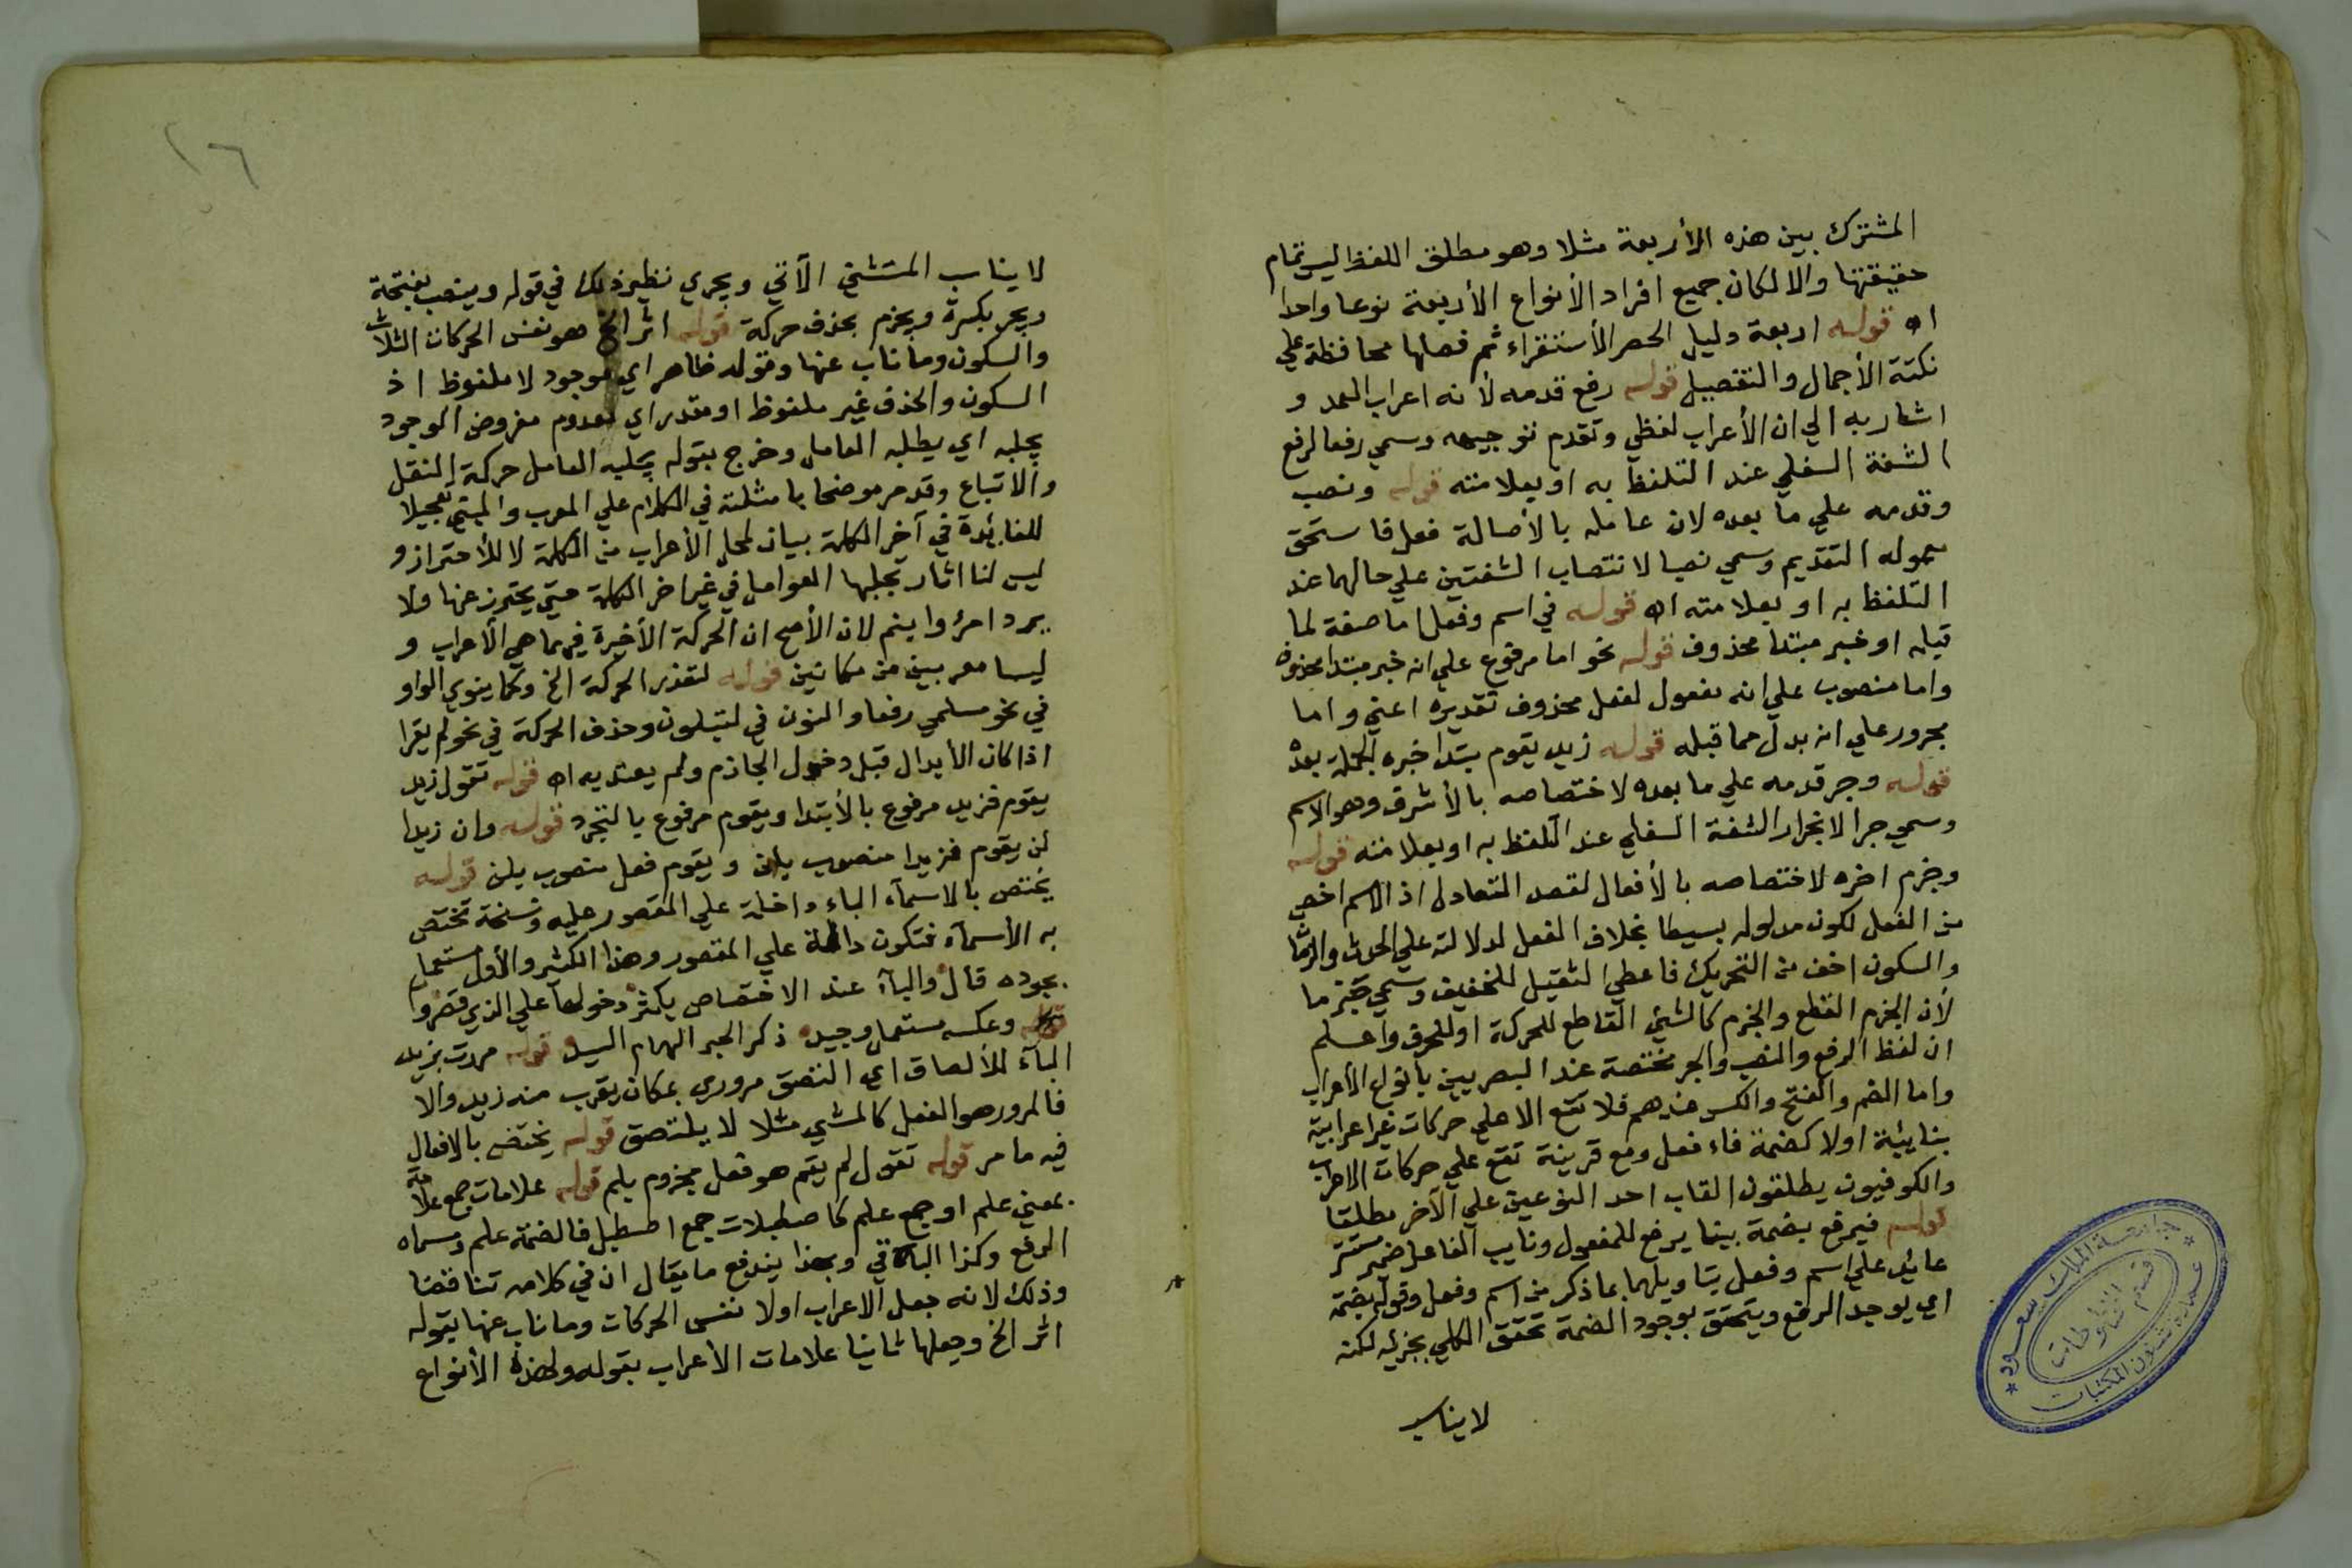 المشترك بين هذه الأربعة مثلا وهو مطلق اللفظ ليس تمام
حقيقتها والا لكان جميع افراد الأنواع الأربعة نوعا واحدا
اه قوله اربعة دليل الحصر الأستقراء ثم فصلها محافظة علي
نكتة الأجمال والتفصيل قوله رفع قدمه لأنه اعراب العمد و
اشار به الي ان الأعراب لفظي وتقدم توجيهه وسمي رفعا لرفع
الشفة السفلي عند التلفظ به او بعلامته قوله ونصب
وقدمه علي ما بعده لان عامله بالأصالة فعل فاستحق
معموله التقديم وسمي نصبا لانتصاب الشفتين علي حالهما عند
التلفظ به او بعلامته اه قوله في اسم وفعل اما صفة لما
قبله او خبر مبتدا محذوف قوله نحو اما مرفوع علي انه خبر مبتدا محذوف
واما منصوب علي انه مفعول لفعل محذوف تقديره اعني واما
مجرور علي انه بدل مما قبله قوله زيد يقوم مبتدا خبره الجملة بعده
قوله وجر قدمه علي ما بعده لاختصاصه بالأشرف وهو الاسم
وسمي جرا لانجرار الشفة السفلي عند التلفظ به او بعلامته قوله
وجزم اخره لاختصاصه بالأفعال لقصد التعادل اذ الاسم اخص
من الفعل لكون مدلوله بسيطا بخلاف الفعل لدلالته علي الحدث والزمان
والسكون اخف من التحريك فاعطي الثقيل للخفيف وسمي جزما
لأن الجزم القطع والجزم كالشئ القاطع للحركة او للحرف واعلم
ان لفظ الرفع والنصب والجر مختصة عند البصريين بانواع الأعراب
واما الضم والفتح والكسر عندهم فلا تقع الا علي حركات غير اعرابية
بنائية اولا كضمة فاء فعل ومع قرينة تقع علي حركات الاعراب
والكوفيون يطلقون القاب احد النوعين علي الآخر مطلقا
قوله فيرفع بضمة ببنا يرفع للمفعول ونايب الفاعل ضمير مستتر
عائد علي اسم وفعل بتاويلهما بما ذكر من اسم وفعل وقوله بضمة
اي يوجد الرفع ويتحقق بوجود الضمة تحقق الكلي بجزئيه لكنه
لا يناسب
جامعة الملك سعود
قسم المخطوطات
عمادة شئون المكتبات
١٦
لا يناسب المستثني الآتي ويجري نظير ذلك في قوله وينصب بفتحة
ويجر بكسرة ويجزم بحذف حركة قوله اثر الخ هو نفس الحركات الثلاث
والسكون وما ناب عنها وقوله ظاهر اي موجود لا ملفوظ اذ
السكون والحذف غير ملفوظ او مقدر اي معدوم مفروض الوجود
يجلبه اي يطلبه العامل وخرج بقوله يجلبه العامل حركة النقل
والاتباع وقد مر موضحا بامثلته في الكلام علي المعرب والمبني تعجيلا
للفائدة في آخر الكلمة بيان لمحل الأعراب من الكلمة لا للأحتراز و
ليس لنا اثار تجلبها العوامل في غير اخر الكلمة حتي يحترز عنها ولا
يرد امرؤ وابنم لان الأصح ان الحركة الأخيرة فيهما هي الأعراب و
ليسا معربين من مكانين قوله لتعذر الحركة الخ وكما ينوي الواو
في نحو مسلمي رفعا والنون في لتبلون وحذف الحركة في نحو لم يقرا
اذا كان الأبدال قبل دخول الجازم ولم يعتد به اه قوله تقول زيد
يقوم فزيد مرفوع بالأبتدا ويقوم مرفوع بالتجرد قوله وان زيدا
لن يقوم فزيدا منصوب بان ويقوم فعل منصوب بلن قوله
يختص بالاسمآء الباء داخلة علي المقصور عليه ونسخة تختص
به الأسمآء فتكون داخلة علي المقصور وهذا الكثير والأول مستعمل
بجوده قال والبآء عند الاختصاص يكثر دخولها علي الذي قصروا
وعكسه مستعمل وجيد ذكر الحبر الهمام السيد قوله مررت بزيد
البآء للألصاق اي التصق مروري بمكان يقرب منه زيد والا
فالمرور هو الفعل كالمشي مثلا لا يلتصق قوله يختص بالافعال
فيه ما مر قوله تقول لم يقم هو فعل مجزوم بلم قوله علامات جمع علامة
بمعني علم او جمع علم كاصطبلات جمع اصطبل فالضمة علم ومسماه
الرفع وكذا الباقي وبهذا يندفع ما يقال ان في كلامه تناقضا
وذلك لانه جعل الاعراب اولا نفس الحركات وما ناب عنها بقوله
اثر الخ وجعلها ثانيا علامات الأعراب بقوله ولهذه الأنواع